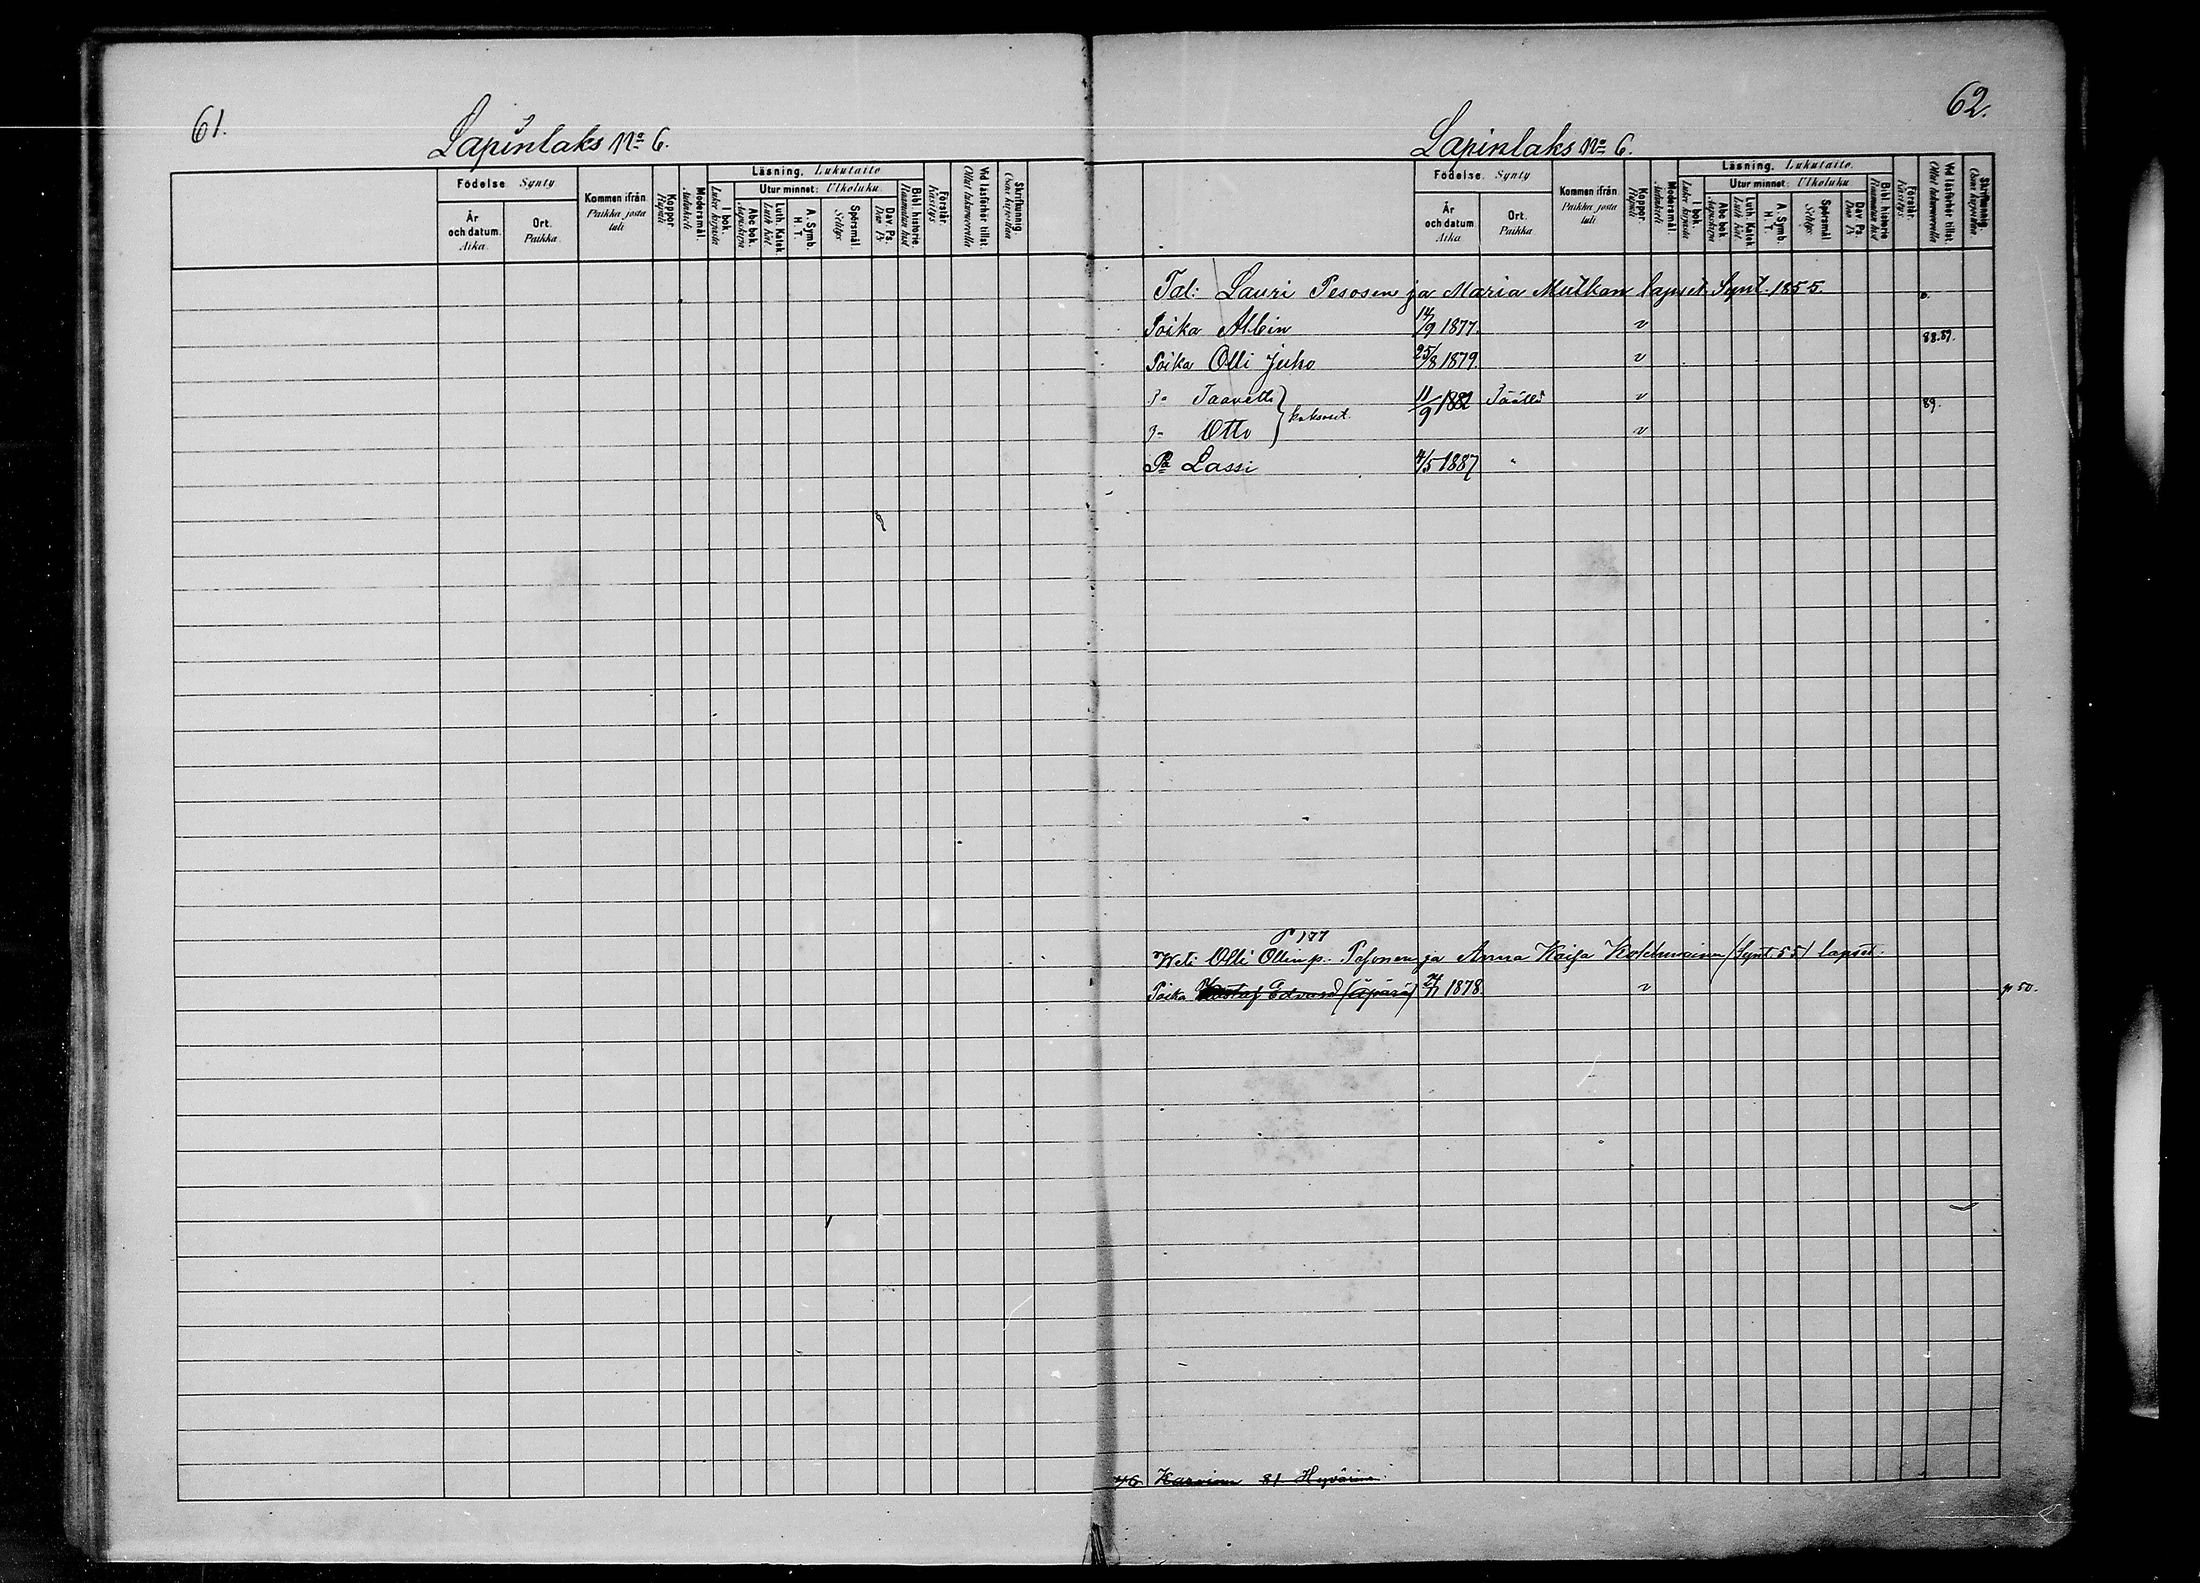 61.
Lapinlaks No 6.
Födelse Synty
År och datum. Aika
Ort. Paikka
Kommen ifrån Paikka josta tuli
Koppor. Rupuli
Modersmål. Äidinkieli
Läsning. Lukutaito
I bok. Lukee kirjasta
Utur minnet: Ulkoluku
Abc bok. Aapiskirja
Luth. Katek. Luth. Kat.
A. Symb. H. T.
Spörsmål Selitys
Dav. Ps. Dav. Ps
Bibl. historie Raamatun hist
Förstår. Käsitys.
Vid läsförhör tillst. Ollut lukuvuorolla
Skriftunnig.
62.
Lapinlaks No 6.
Födelse. Synty
År och datum Aika
Ort. Paikka
Kommen ifrån. Paikka josta tuli
Koppor. Rupuli
Modersmål. Äidinkieli
Läsning. Lukutaito.
I bok. Lukee kirjasta
Utur minnet: Ulkoluku
Abc bok Aapiskirja
Luth. Katek. Luth. Kat.
A. Symb. H. T.
Spörsmål Selitys
Dav. Ps. Dav. Ps
Bibl. historie Raamatun hist
Förstår. Käsitys.
Vid läsförhör tillst. Ollut lukuvuorolla
Skriftunnig.
Tal: Lauri Pesosen ja Maria Mutkan lapset Synt. 1855.
Poika Albin 14/9 1877. v
88.89.
Poika Olli Juho 25/8 1879. v
Taavetti } kaksoset. 11/9 1882 Täällä v
89.
Otto v
Pa Lassi 4/5 1887 "
P 177
Weli Olli Ollinp. Pesonen ja Anna Kaisa Kolehmainen (Synt. 55) lapset.
Poika Kustaf Edvard (äpärä) 1878. v p 50.
76 Karvinen 81 Hyvärinen